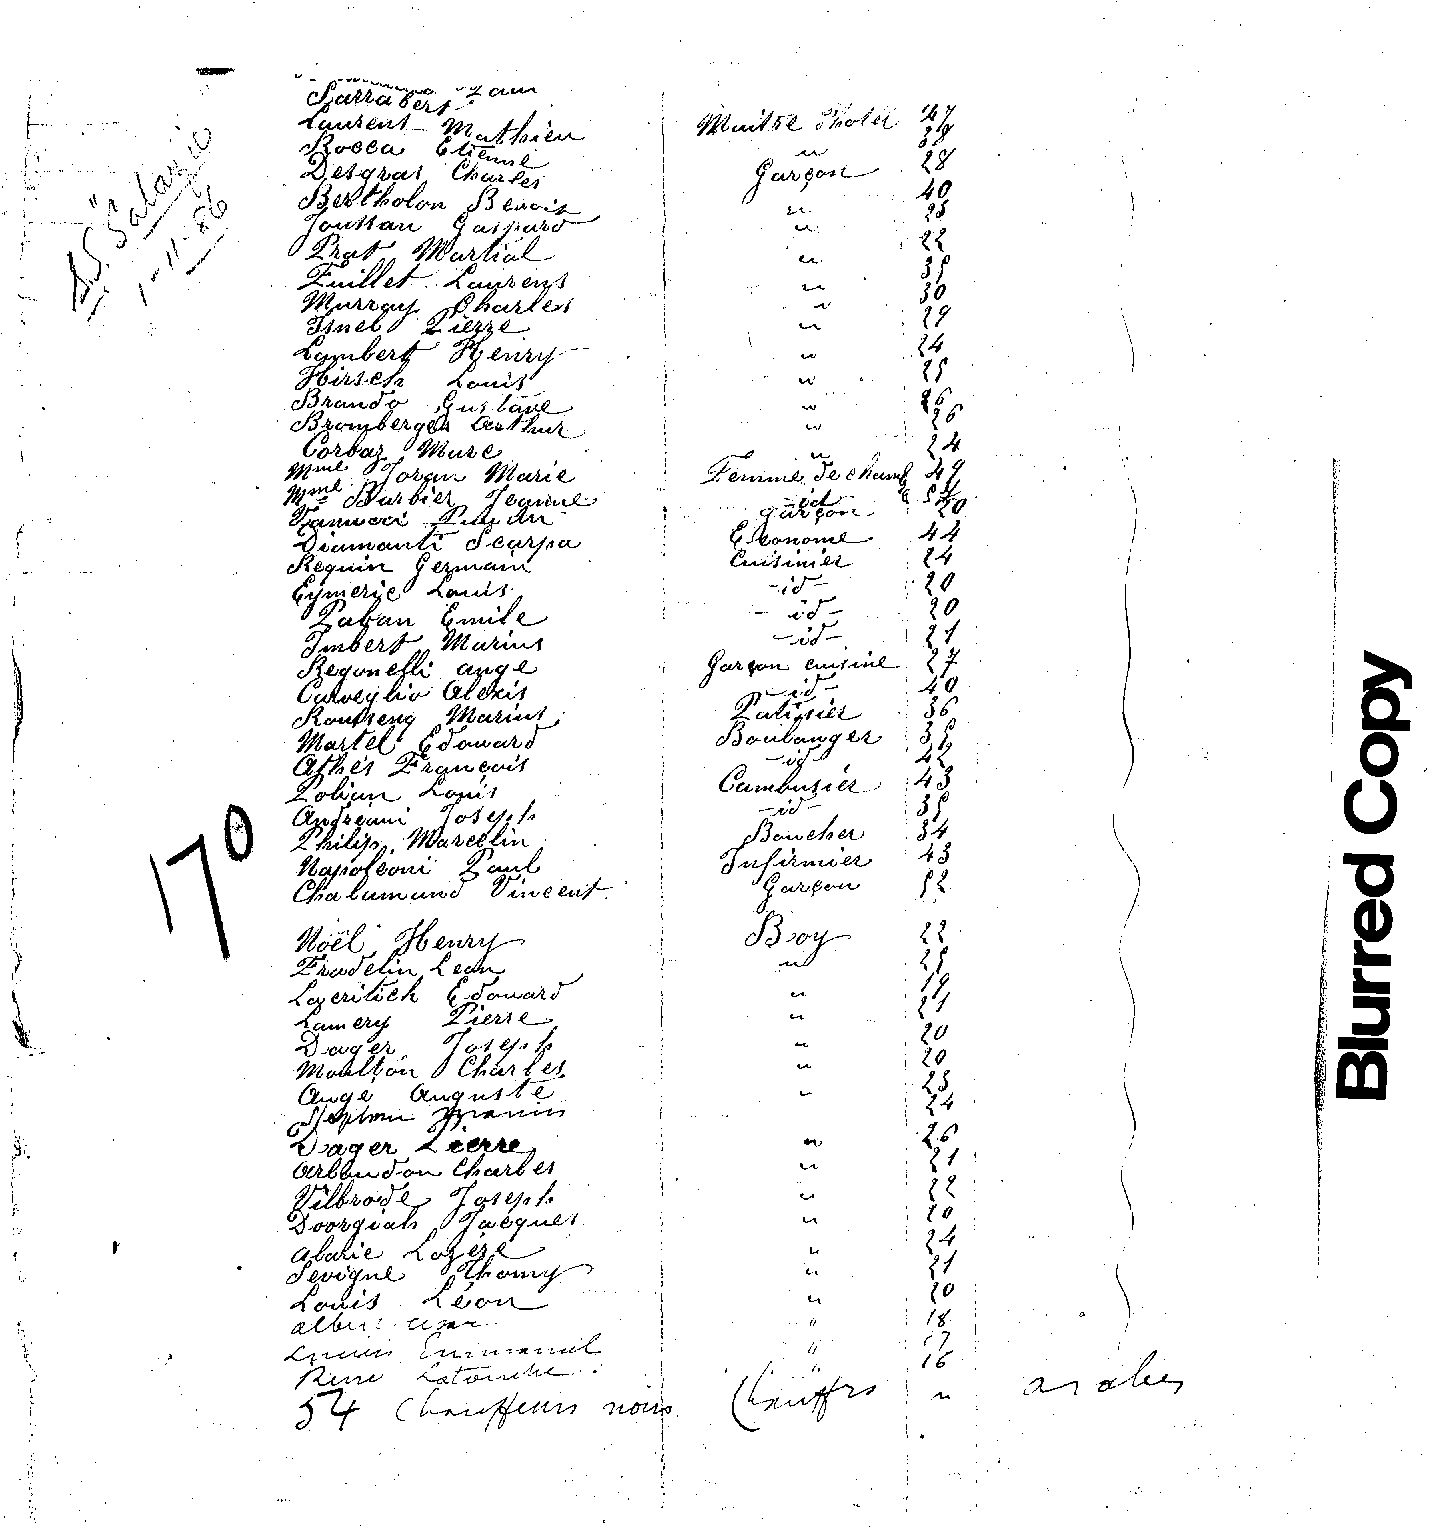 S.S. "Salazie
1-11-86
Sarrabert Jean
Laurent Mathieu Maitre d'hotel 47
Rocca Etienne " 38
Desgras Charles Garçon 28
Bertholon Benoit " 40
Jouttan Gaspard " 25
Prat Martial " 22
Fuillet Laurens " 35
Murray Charles " 30
Isnel Pierre " 29
Lambert Henry " 24
Hirsch Louis " 25
Brando Gustave " 26
Bromberger Arthur " 26
Corbaz Marc " 24
Mme Joran Marie Femme de chamb 49
Mme Barbier Jeanne -id-
Vanucci garçon 20
Diamanti Scarpa Econome 44
Requin Germain Cuisinier 24
Eymeric Louis -id- 20
Paban Emile -id- 20
Imbert Marius -id- 21
Regonelli Ange Garçon cuisine 27
Carveglio Alexis -id- 40
Routseng Marius Patissier 36
Martel Edouard Boulanger 35
Athes François -id- 42
Polian Louis Cambusier 43
Andreani Joseph -id- 35
Philip Marcelin Boucher 34
Napoleoni Paul Infirmier 43
Chabumund Vincent Garçon 52
170
Noël Henry Boy 22
Fradelin Leon " 25
Lazeritich Edouard " 19
Lamery Pierre " 21
Dager Joseph " 20
Moulton Charles " 20
Ange Auguste " 23
24
Dager Pierre " 26
Arbendon Charles " 21
Vilbrode Joseph " 22
Doorgiah Jacques " 20
Alarie Lozère " 24
Sevigne Thomy " 21
Louis Léon " 20
" 18
Emmanuel " 17
René Latouche " 16
54 Chauffeurs noirs Chauffrs " arabes
Blurred Copy